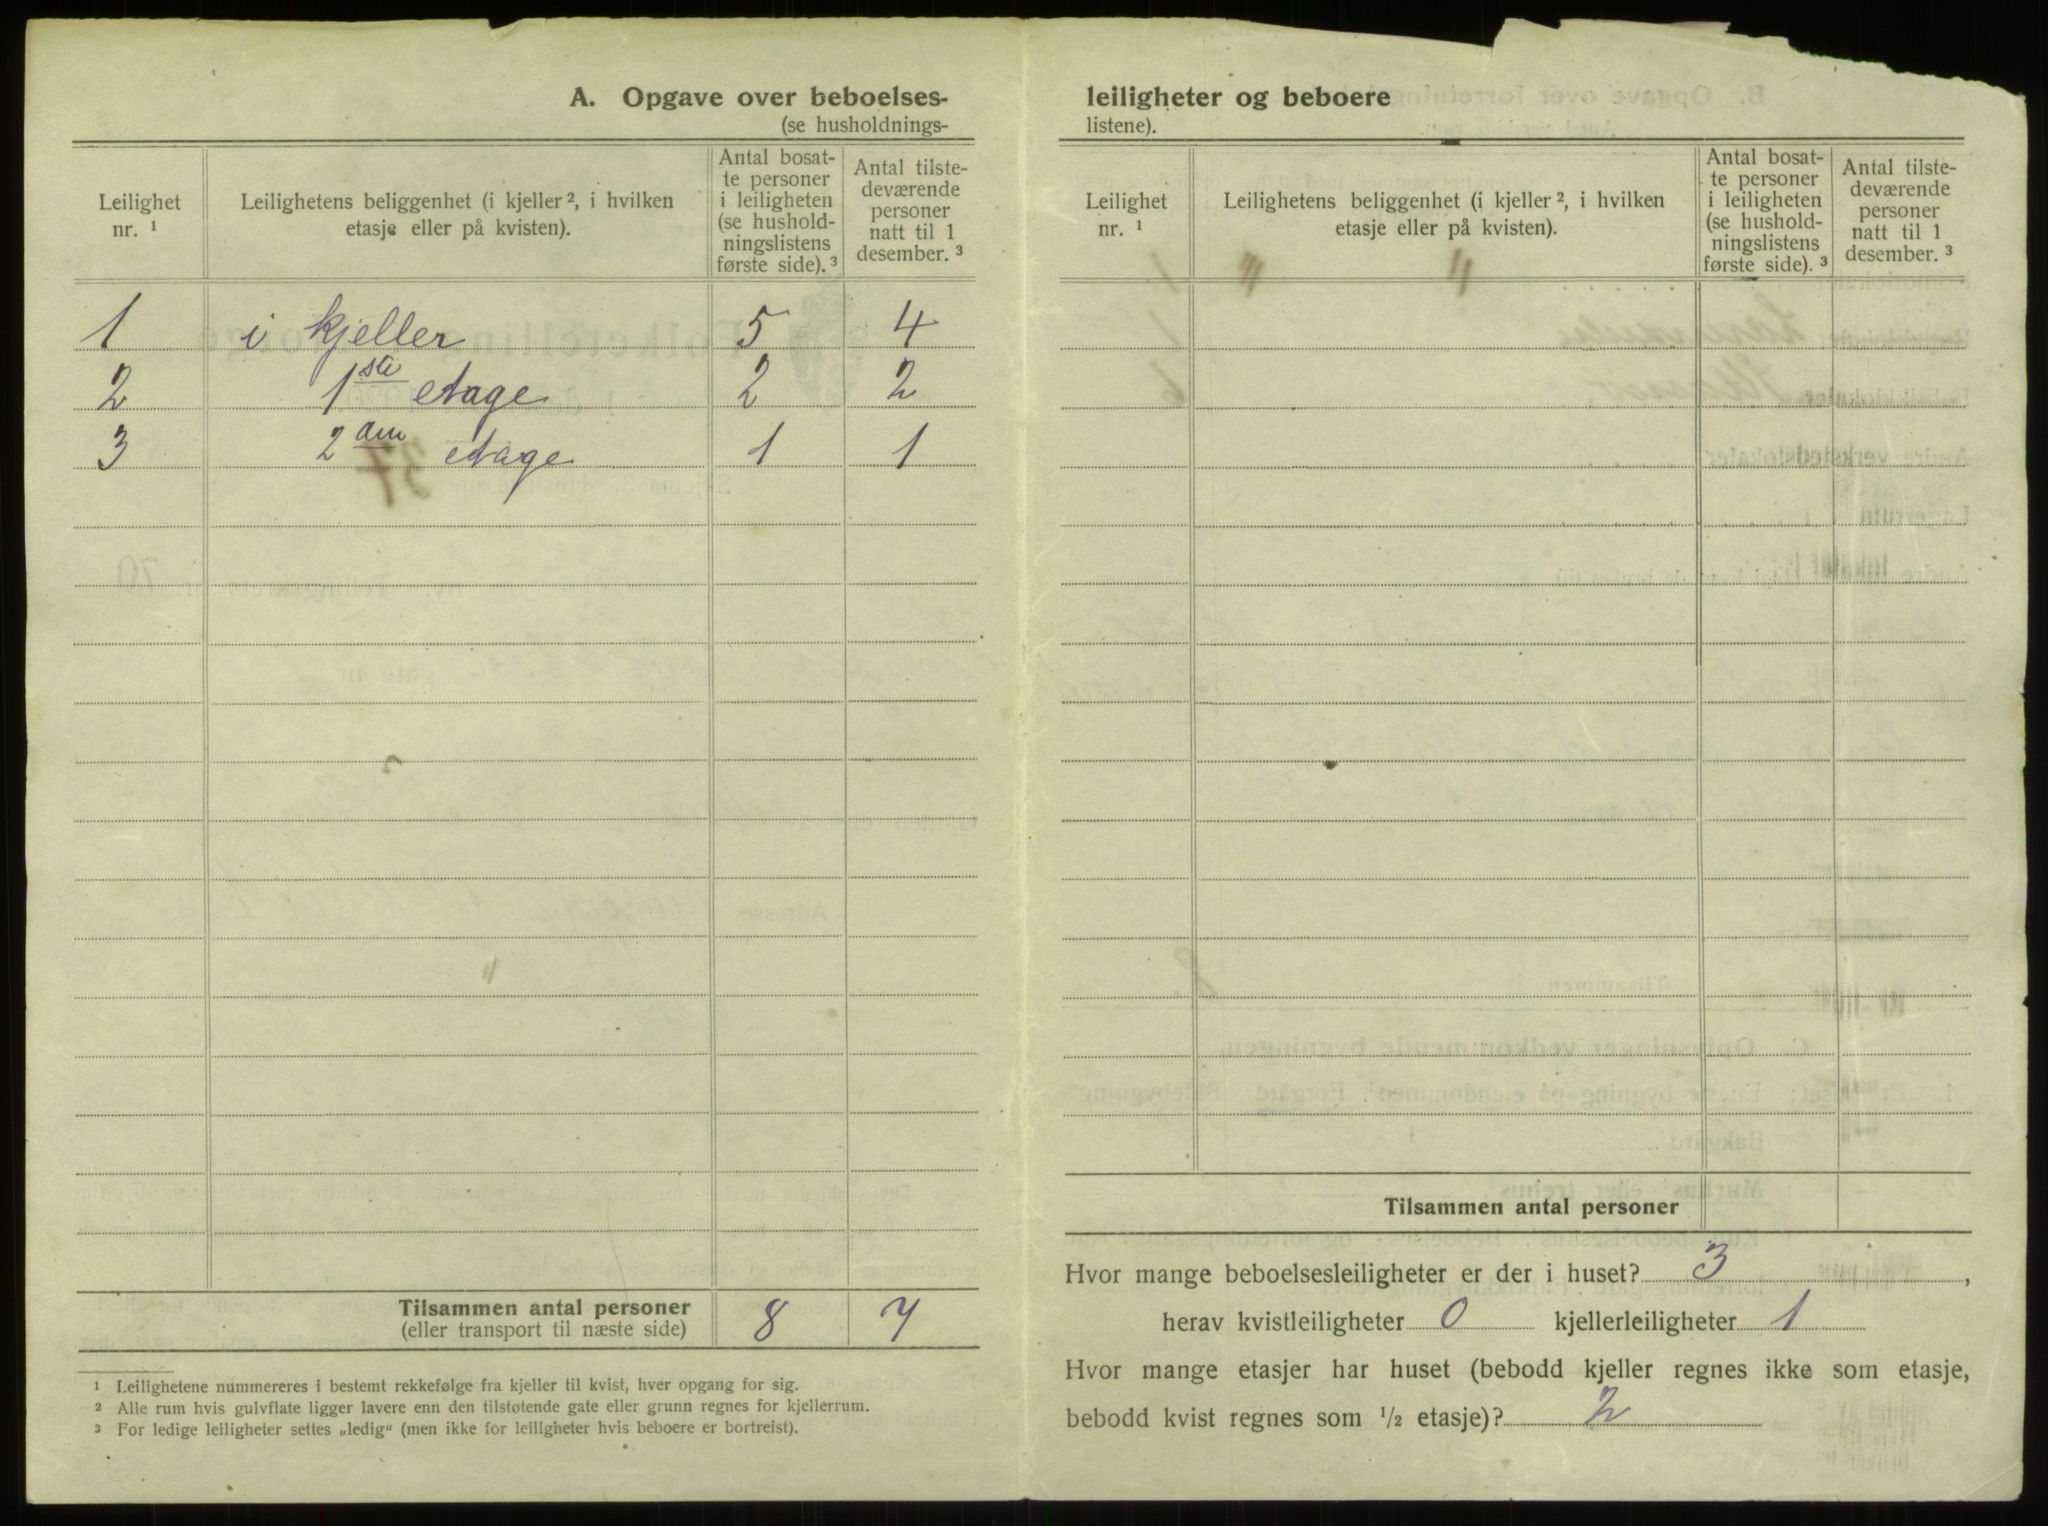 A. Opgave over beboelses-
(se husholdnings-
Leilighet nr. ¹
Leilighetens beliggenhet (i kjeller ², i hvilken
etasje eller på kvisten).
Antal bosat-
te personer
i leiligheten
(se hushold-
ningslistens
første side). ³
Antal tilste-
deværende
personer
natt til 1
desember. ³
1 i kjeller 5 4
2 1ste etage 2 2
3 2den etage 1 1
Tilsammen antal personer 8 7
(eller transport til næste side)
¹ Leilighetene nummereres i bestemt rekkefølge fra kjeller til kvist, hver opgang for sig.
² Alle rum hvis gulvflate ligger lavere enn den tilstøtende gate eller grunn regnes for kjellerrum.
³ For ledige leiligheter settes „ledig“ (men ikke for leiligheter hvis beboere er bortreist).
leiligheter og beboere
listene).
Leilighet nr. ¹
Leilighetens beliggenhet (i kjeller ², i hvilken
etasje eller på kvisten).
Antal bosat-
te personer
i leiligheten
(se hushold-
ningslistens
første side). ³
Antal tilste-
deværende
personer
natt til 1
desember. ³
Tilsammen antal personer
Hvor mange beboelsesleiligheter er der i huset? 3,
herav kvistleiligheter 0 kjellerleiligheter 1
Hvor mange etasjer har huset (bebodd kjeller regnes ikke som etasje,
bebodd kvist regnes som ½ etasje)? 2